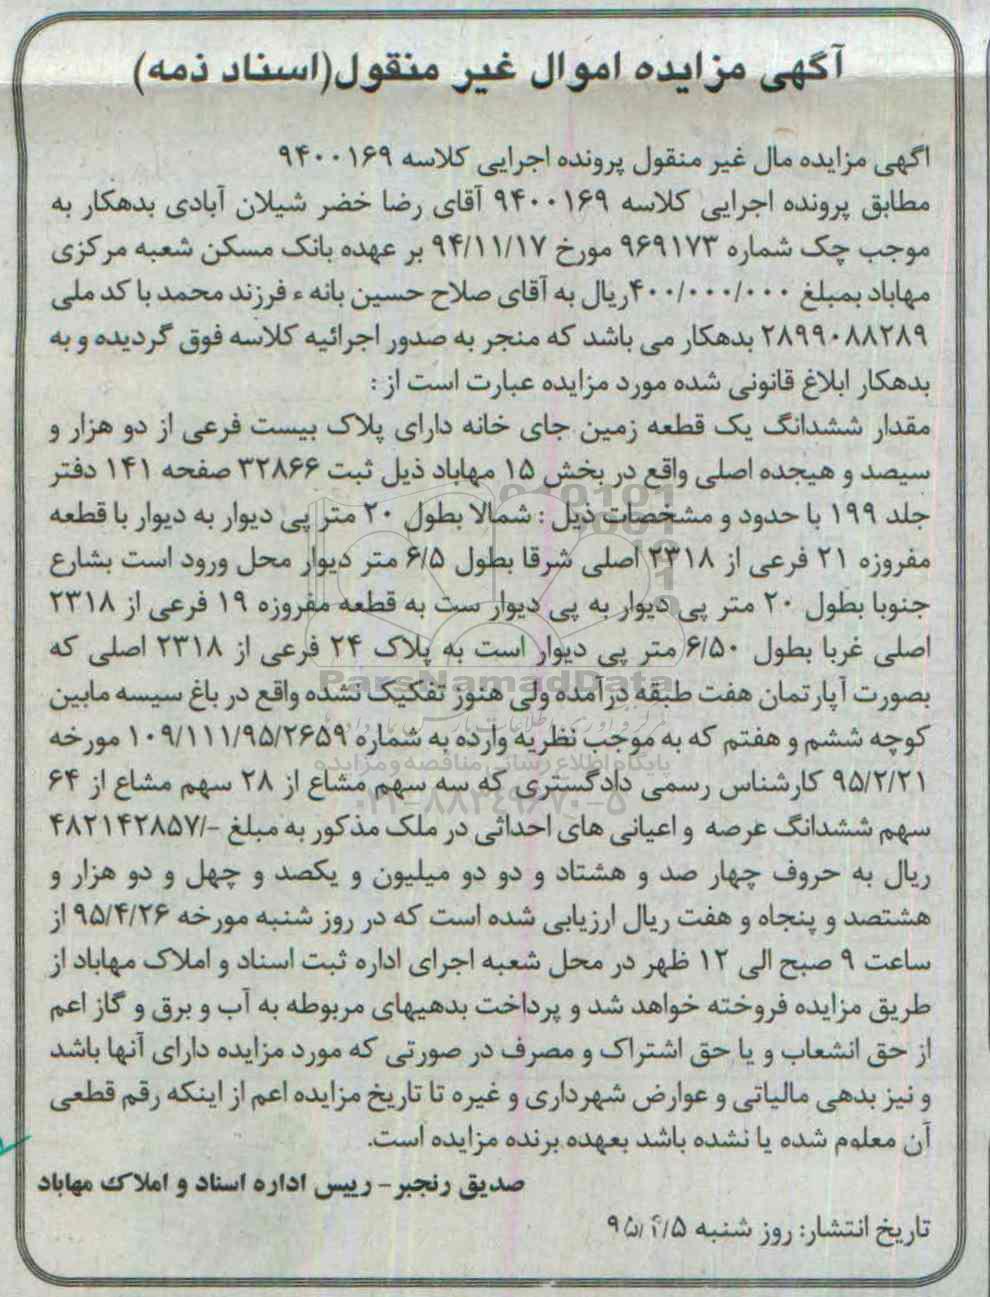 آگهی مزایده اموال غیر منقول(اسناد ذمه)
اگهی مزایده مال غیر منقول پرونده اجرایی کلاسه ۹۴۰۰۱۶۹
مطابق پرونده اجرایی کلاسه ۹۴۰۰۱۶۹ آقای رضا خضر شیلان آبادی بدهکار به
موجب چک شماره ۹۶۹۱۷۳ مورخ ۹۴/۱۱/۱۷ بر عهده بانک مسکن شعبه مرکزی
مهاباد بمبلغ ۴۰۰/۰۰۰/۰۰۰ریال به آقای صلاح حسین بانه ء فرزند محمد با کد ملی
۲۸۹۹۰۸۸۲۸۹ بدهکار می باشد که منجر به صدور اجرائیه کلاسه فوق گردیده و به
بدهکار ابلاغ قانونی شده مورد مزایده عبارت است از :
مقدار ششدانگ یک قطعه زمین جای خانه دارای پلاک بیست فرعی از دو هزار و
سیصد و هیجده اصلی واقع در بخش ۱۵ مهاباد ذیل ثبت ۳۲۸۶۶ صفحه ۱۴۱ دفتر
جلد ۱۹۹ با حدود و مشخصات ذیل : شمالا بطول ۲۰ متر پی دیوار به دیوار با قطعه
مفروزه ۲۱ فرعی از ۲۳۱۸ اصلی شرقا بطول ۶/۵ متر دیوار محل ورود است بشارع
جنوبا بطول ۲۰ متر پی دیوار به پی دیوار ست به قطعه مفروزه ۱۹ فرعی از ۲۳۱۸
اصلی غربا بطول ۶/۵۰ متر پی دیوار است به پلاک ۲۴ فرعی از ۲۳۱۸ اصلی که
بصورت آپارتمان هفت طبقه درآمده ولی هنوز تفکیک نشده واقع در باغ سیسه مابین
کوچه ششم و هفتم که به موجب نظریه وارده به شماره ۱۰۹/۱۱۱/۹۵/۲۶۵۹ مورخه
۹۵/۲/۲۱ کارشناس رسمی دادگستری که سه سهم مشاع از ۲۸ سهم مشاع از ۶۴
سهم ششدانگ عرصه و اعیانی های احداثی در ملک مذکور به مبلغ -/۴۸۲۱۴۲۸۵۷
ریال به حروف چهار صد و هشتاد و دو دو میلیون و یکصد و چهل و دو هزار و
هشتصد و پنجاه و هفت ریال ارزیابی شده است که در روز شنبه مورخه ۹۵/۴/۲۶ از
ساعت ۹ صبح الی ۱۲ ظهر در محل شعبه اجرای اداره ثبت اسناد و املاک مهاباد از
طریق مزایده فروخته خواهد شد و پرداخت بدهیهای مربوطه به آب و برق و گاز اعم
از حق انشعاب و یا حق اشتراک و مصرف در صورتی که مورد مزایده دارای آنها باشد
و نیز بدهی مالیاتی و عوارض شهرداری و غیره تا تاریخ مزایده اعم از اینکه رقم قطعی
آن معلوم شده یا نشده باشد بعهده برنده مزایده است.
صدیق رنجبر- رییس اداره اسناد و املاک مهاباد
تاریخ انتشار: روز شنبه ۹۵/۴/۵
ParsNamadData
پایگاه اطلاع رسانی مناقصه و مزایده
۰۲۱-۸۸۳۴۹۶۷۰-۵